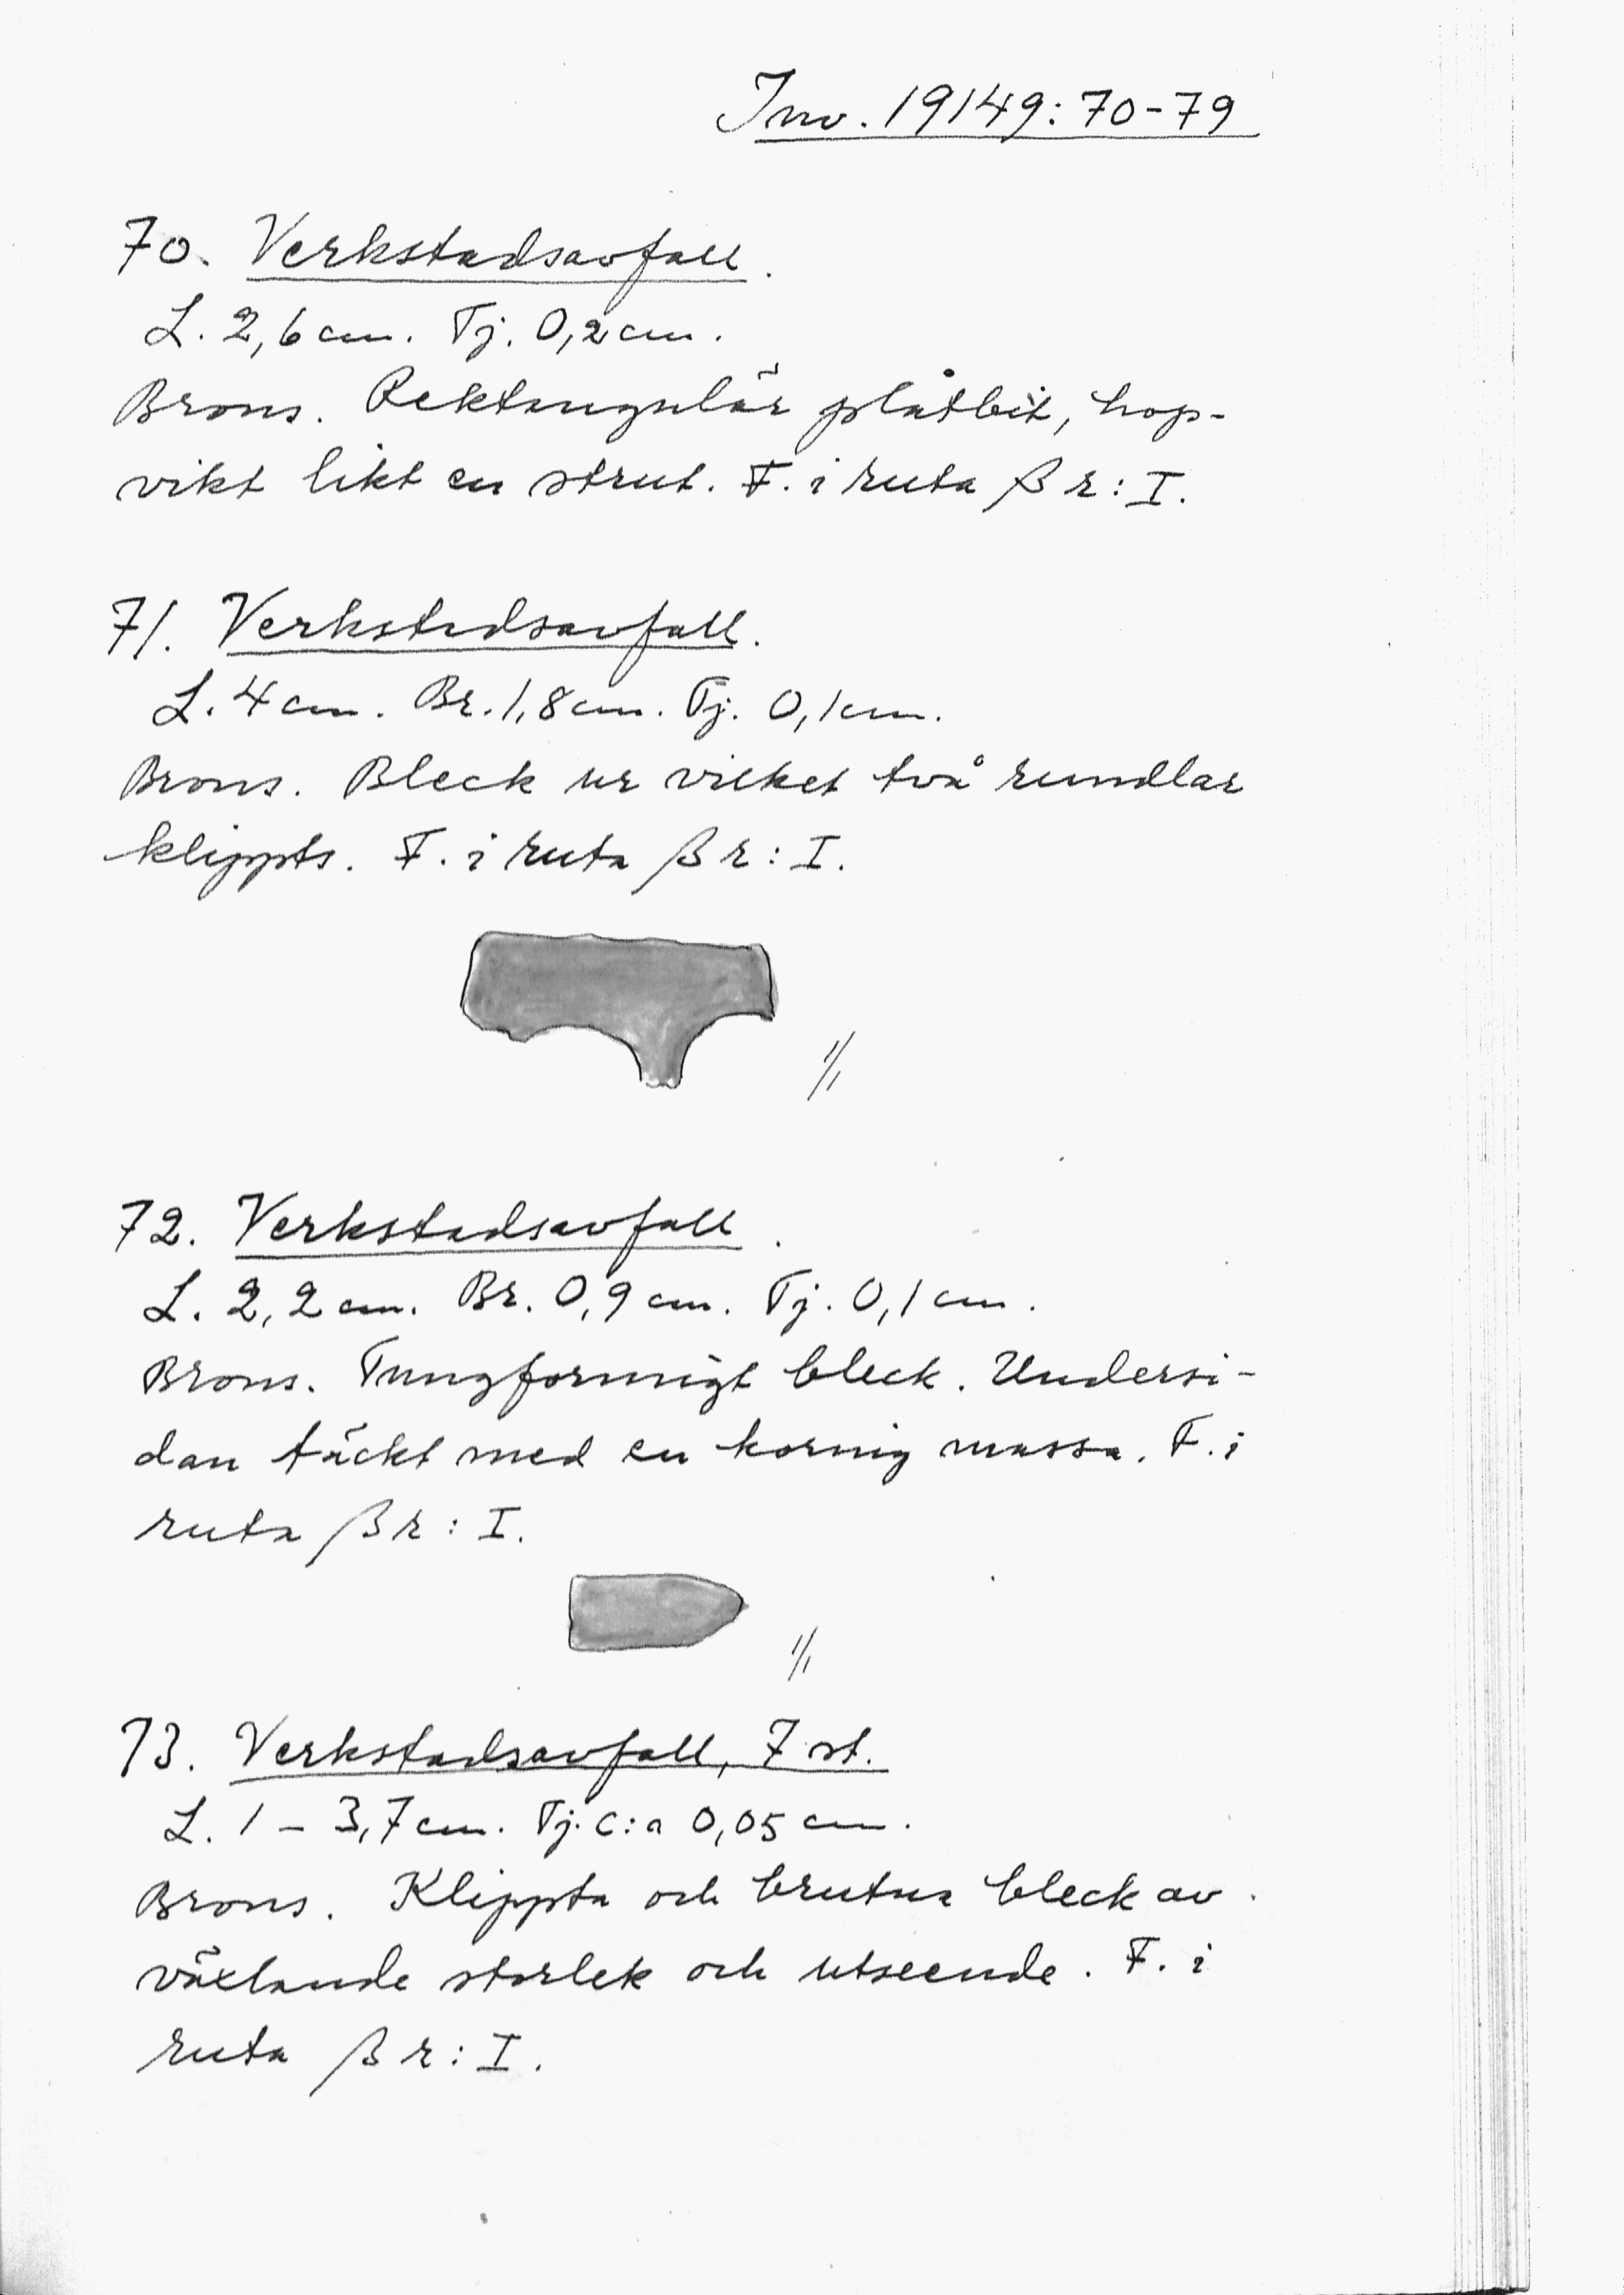 Inv. 19149: 70-79
70. Verkstadsavfall.
L. 2,6 cm. Tj. 0,2 cm.
Brons. Rektangulär plåtbit, hop-
vikt likt en strut. F. i ruta β r: I.
71. Verkstadsavfall.
L. 4 cm. Br. 1,8 cm. Tj. 0,1 cm.
Brons. Bleck ur vilket två rundlar
klippts. F. i ruta β r: I.
1/1
72. Verkstadsavfall.
L. 2,2 cm. Br. 0,9 cm. Tj. 0,1 cm.
Brons. Tungformigt bleck. Undersi-
dan täckt med en kornig massa. F. i
ruta β r: I.
1/1
73. Verkstadsavfall, 7 st.
L. 1 - 3,7 cm. Tj. c:a 0,05 cm.
Brons. Klippta och brutna bleck av
växlande storlek och utseende. F. i
ruta β r: I.